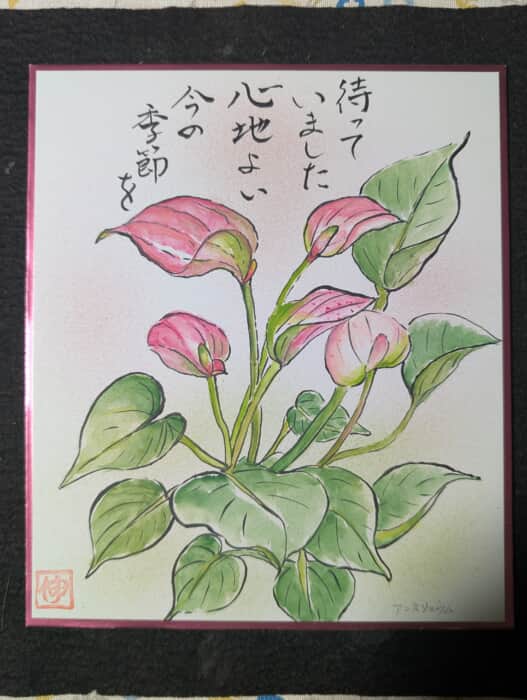 待って
いました
心地よい
今の
季節を
アンスリュウム
伸